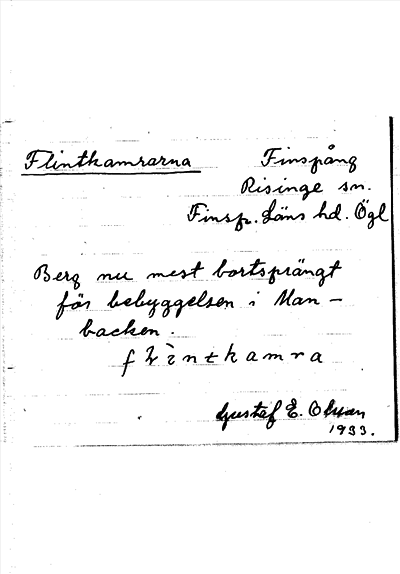 Flintkamrarna
Finspång
Risinge sn.
Finsp. Läns hd. Ögl
Berg nu mest bortsprängt
för bebyggelsen i Man-
backen.
flintkamra
Gustaf E. Olsson
1933.